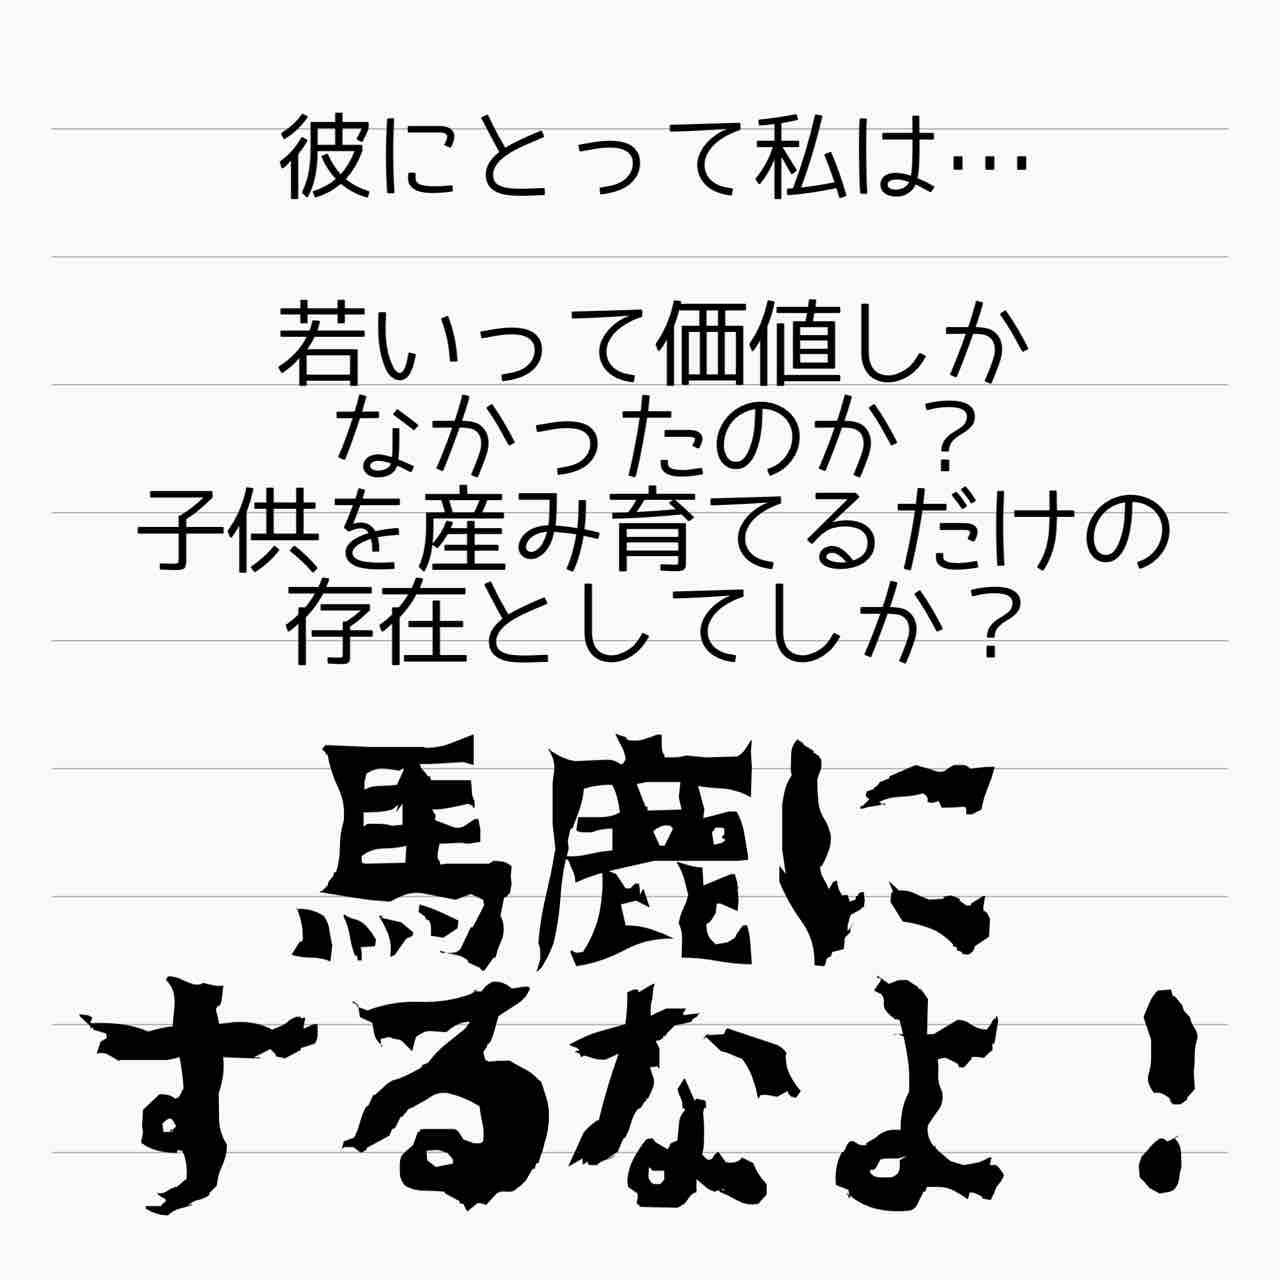 彼にとって私は…
若いって価値しか
なかったのか？
子供を産み育てるだけの
存在としてしか？
馬鹿に
するなよ！